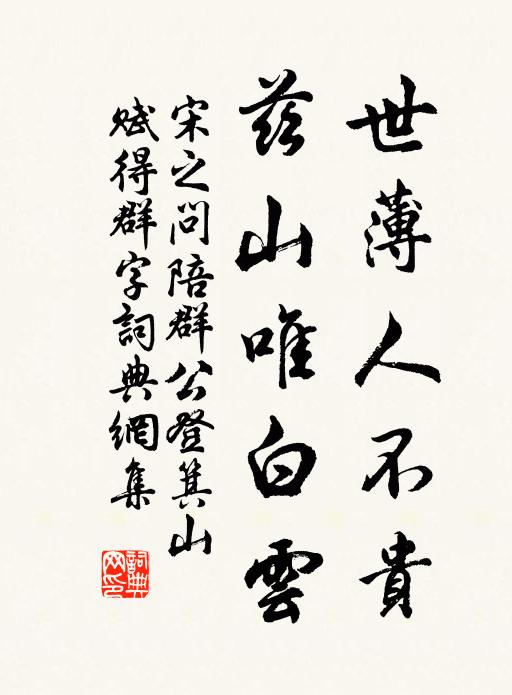 世薄人不貴
茲山唯白雲
宋之問陪群公登箕山
賦得群字詞典網集
詞典
网印